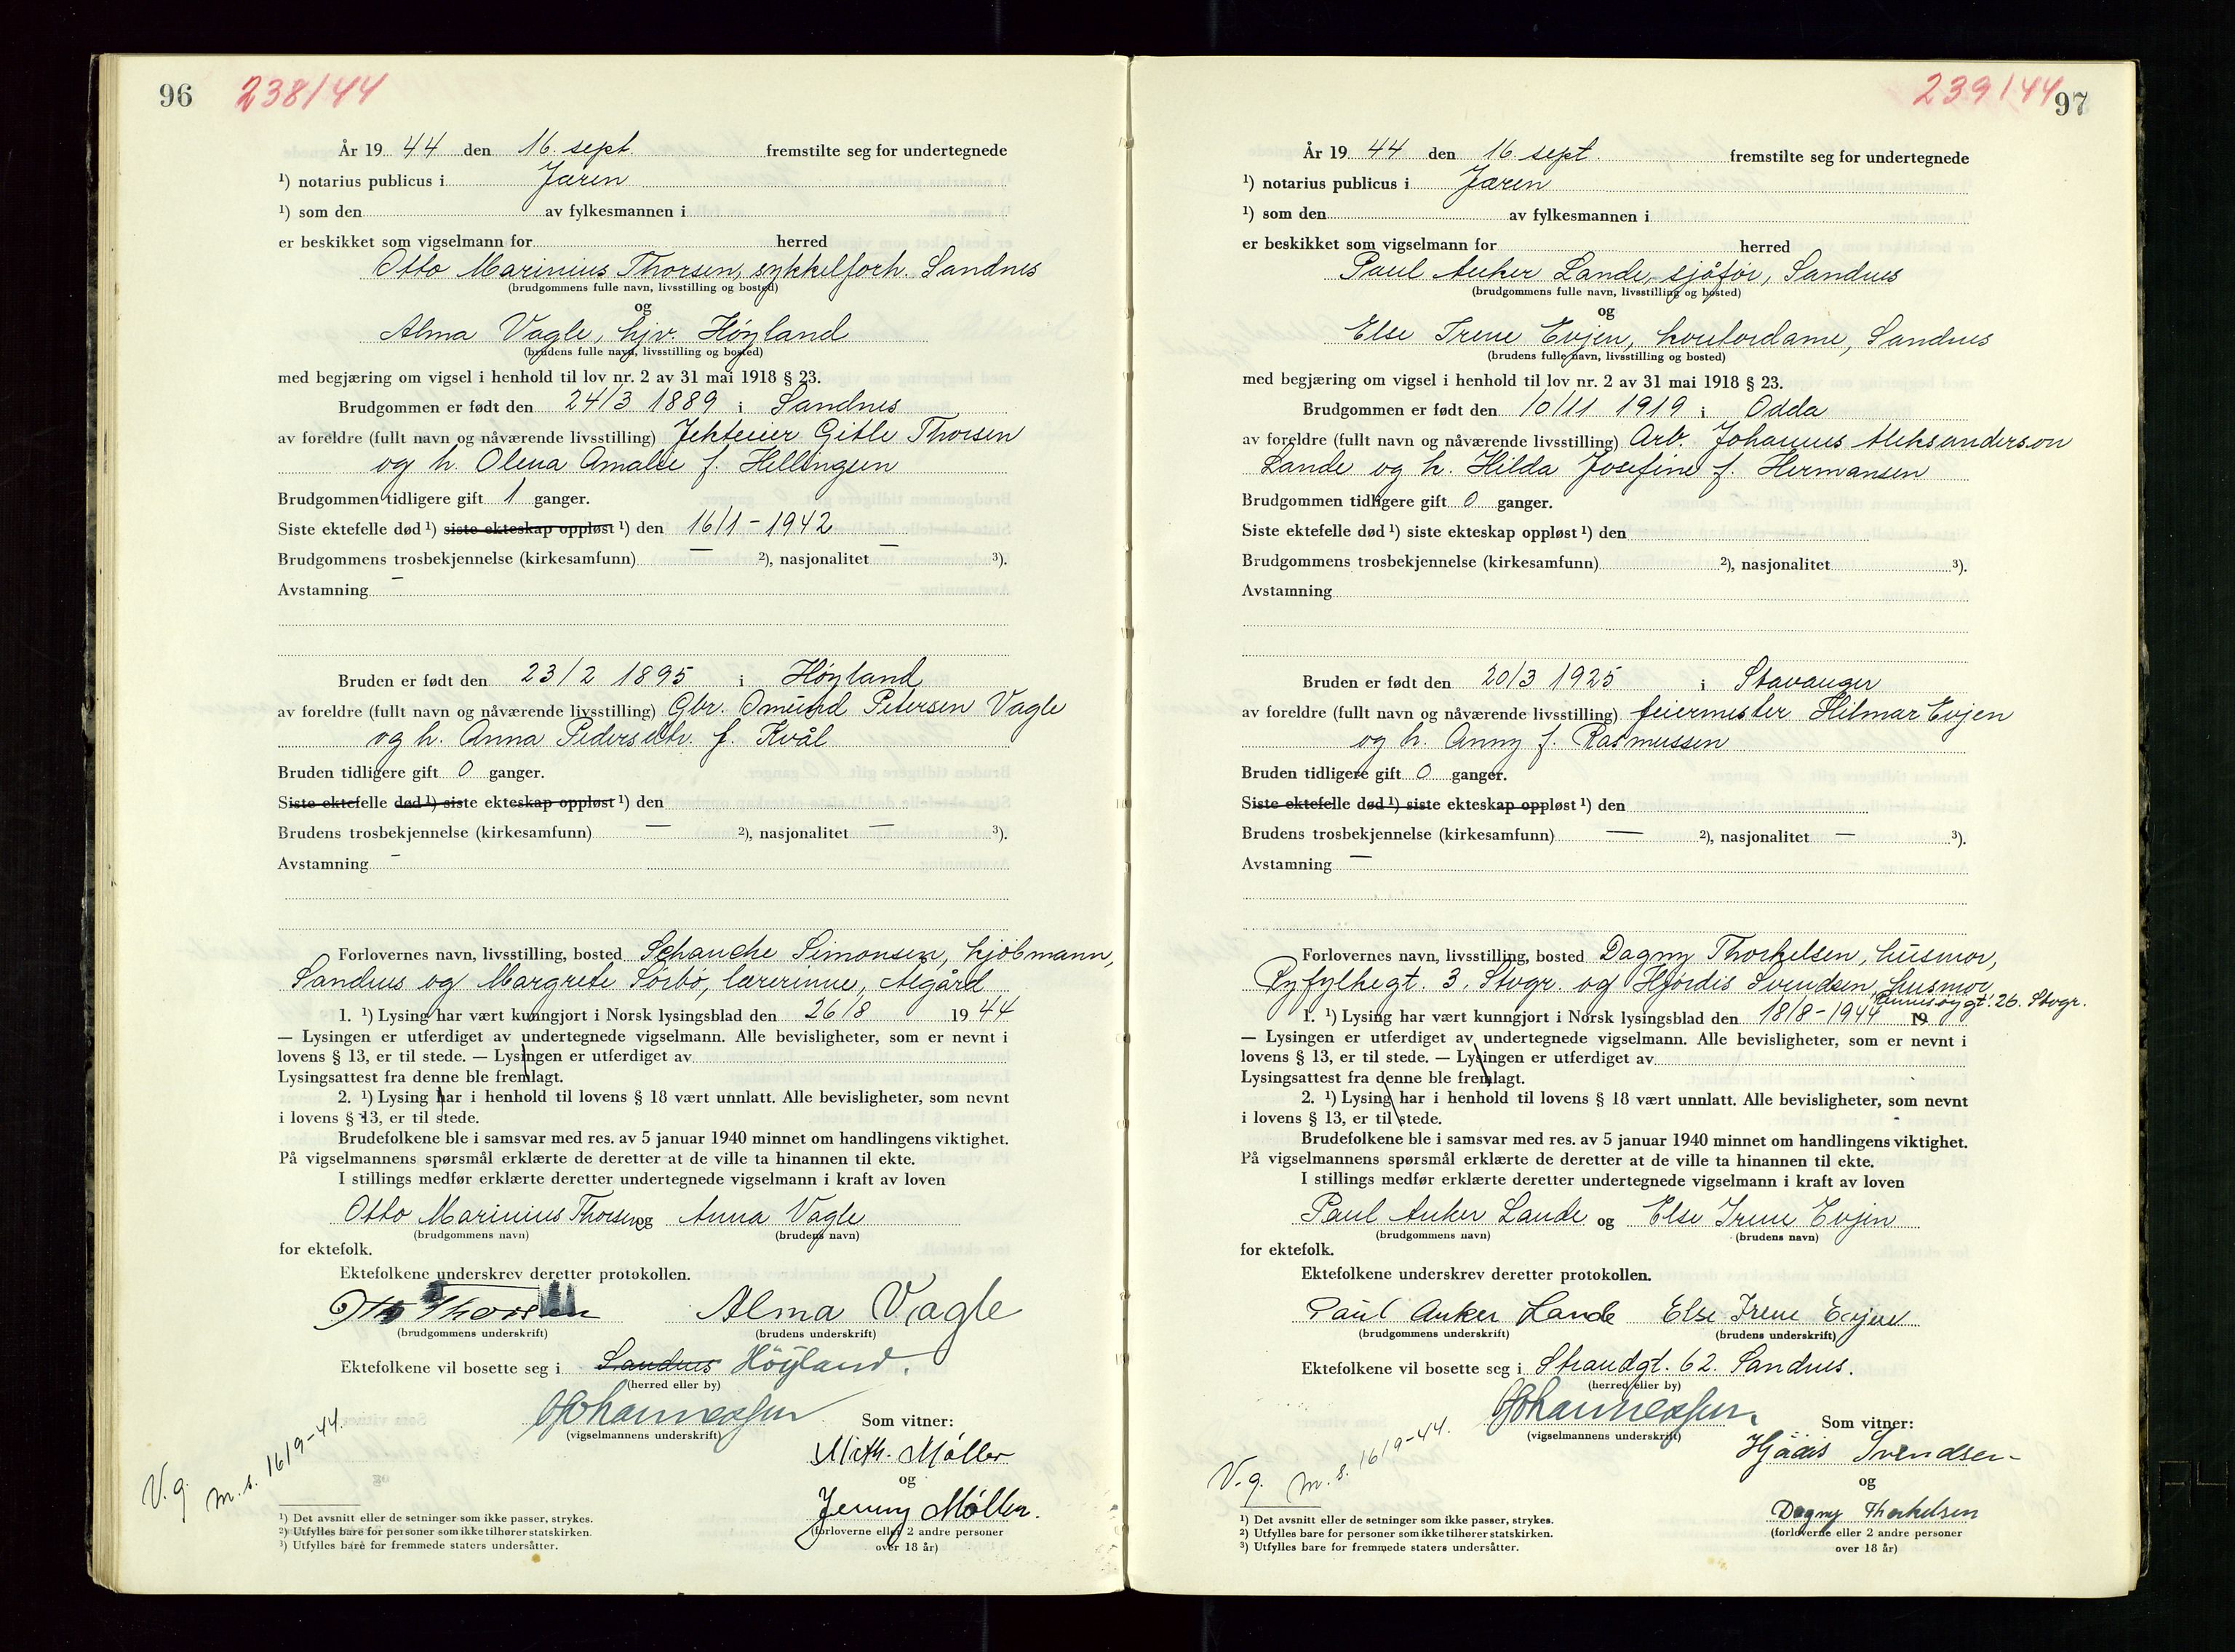 96 238/44
År 19 44 den 16. sept. fremstilte seg for undertegnede
¹) notarius publicus i Jæren
¹) som den av fylkesmannen i
er beskikket som vigselmann for herred
Otto Marinius Thorsen, sykkelforh. Sandnes
(brudgommens fulle navn, livsstilling og bosted)
og
Alma Vagle, hjv. Høyland
(brudens fulle navn, livsstilling og bosted)
med begjæring om vigsel i henhold til lov nr. 2 av 31 mai 1918 § 23.
Brudgommen er født den 24/3 1889 i Sandnes
av foreldre (fullt navn og nåværende livsstilling) Jekteier Gitle Thorsen
og h. Olena Amalie f. Hellingsen
Brudgommen tidligere gift 1 ganger.
Siste ektefelle død ¹) siste ekteskap oppløst ¹) den 16/1 - 1942
Brudgommens trosbekjennelse (kirkesamfunn) — ²), nasjonalitet — ³).
Avstamning —
Bruden er født den 23/2 1895 i Høyland
av foreldre (fullt navn og nåværende livsstilling) Gbr. Omund Petersen Vagle
og h. Anna Pedersdtr. f. Kvål
Bruden tidligere gift 0 ganger.
Siste ektefelle død ¹) siste ekteskap oppløst ¹) den
Brudens trosbekjennelse (kirkesamfunn) — ²), nasjonalitet — ³).
Avstamning —
Forlovernes navn, livsstilling, bosted Schanche Simonsen, kjøbmann,
Sandnes og Margrete Sörbö, lærerinne, Algård
1. ¹) Lysing har vært kunngjort i Norsk lysingsblad den 26/8 19 44
— Lysingen er utferdiget av undertegnede vigselmann. Alle bevisligheter, som er nevnt i
lovens § 13, er til stede. — Lysingen er utferdiget av
Lysingsattest fra denne ble fremlagt.
2. ¹) Lysing har i henhold til lovens § 18 vært unnlatt. Alle bevisligheter, som nevnt
i lovens § 13, er til stede.
Brudefolkene ble i samsvar med res. av 5 januar 1940 minnet om handlingens viktighet.
På vigselmannens spørsmål erklærte de deretter at de ville ta hinannen til ekte.
I stillings medfør erklærte deretter undertegnede vigselmann i kraft av loven
Otto Marinius Thorsen og Anna Vagle
(brudgommens navn) (brudens navn)
for ektefolk.
Ektefolkene underskrev deretter protokollen.
Otto Thorsen Alma Vagle
(brudgommens underskrift) (brudens underskrift)
Ektefolkene vil bosette seg i Sandnes Höyland.
(herred eller by)
Johannessen Som vitner:
(vigselmannens underskrift)
Mith. Møller
og
Jenny Møller.
(forloverne eller 2 andre personer
over 18 år)
V.g. m.s. 16/9-44.
¹) Det avsnitt eller de setninger som ikke passer, strykes.
²) Utfylles bare for personer som ikke tilhører statskirken.
³) Utfylles bare for fremmede staters undersåtter.
239/44 97
År 19 44 den 16. sept. fremstilte seg for undertegnede
¹) notarius publicus i Jæren
¹) som den av fylkesmannen i
er beskikket som vigselmann for herred
Paul Anker Lande, sjåfør, Sandnes
(brudgommens fulle navn, livsstilling og bosted)
og
Else Irene Evjen, kontordame, Sandnes
(brudens fulle navn, livsstilling og bosted)
med begjæring om vigsel i henhold til lov nr. 2 av 31 mai 1918 § 23.
Brudgommen er født den 10/11 1919 i Odda
av foreldre (fullt navn og nåværende livsstilling) Arb. Johannes Aleksanderson
Lande og h. Hilda Josefine f. Hermansen
Brudgommen tidligere gift 0 ganger.
Siste ektefelle død ¹) siste ekteskap oppløst ¹) den
Brudgommens trosbekjennelse (kirkesamfunn) ²), nasjonalitet ³).
Avstamning
Bruden er født den 20/3 1925 i Stavanger
av foreldre (fullt navn og nåværende livsstilling) feiermester Hilmar Evjen
og h. Anny f. Rasmussen
Bruden tidligere gift 0 ganger.
Siste ektefelle død ¹) siste ekteskap oppløst ¹) den
Brudens trosbekjennelse (kirkesamfunn) — ²), nasjonalitet — ³).
Avstamning —
Forlovernes navn, livsstilling, bosted Dagny Thorkelsen, husmor,
Ryfylkegt. 3. Stvgr. og Hjørdis Svendsen, husmor,
gt. 26. Stvgr.
1. ¹) Lysing har vært kunngjort i Norsk lysingsblad den 18/8 - 1944 19
— Lysingen er utferdiget av undertegnede vigselmann. Alle bevisligheter, som er nevnt i
lovens § 13, er til stede. — Lysingen er utferdiget av
Lysingsattest fra denne ble fremlagt.
2. ¹) Lysing har i henhold til lovens § 18 vært unnlatt. Alle bevisligheter, som nevnt
i lovens § 13, er til stede.
Brudefolkene ble i samsvar med res. av 5 januar 1940 minnet om handlingens viktighet.
På vigselmannens spørsmål erklærte de deretter at de ville ta hinannen til ekte.
I stillings medfør erklærte deretter undertegnede vigselmann i kraft av loven
Paul Anker Lande og Else Irene Evjen
(brudgommens navn) (brudens navn)
for ektefolk.
Ektefolkene underskrev deretter protokollen.
Paul Anker Lande Else Irene Evjen
(brudgommens underskrift) (brudens underskrift)
Ektefolkene vil bosette seg i Strandgt. 62. Sandnes.
(herred eller by)
Johannessen. Som vitner:
(vigselmannens underskrift)
Hjørdis Svendsen
og
Dagny Thorkelsen
(forloverne eller 2 andre personer
over 18 år)
V.g. m.s. 16/9-44.
¹) Det avsnitt eller de setninger som ikke passer, strykes.
²) Utfylles bare for personer som ikke tilhører statskirken.
³) Utfylles bare for fremmede staters undersåtter.